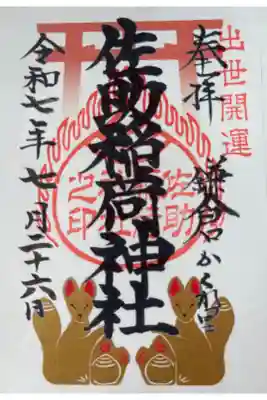 出世開運
奉拝 鎌倉かくれ里
佐助稲荷神社
佐助稲荷神社之印
令和七年七月二十六日